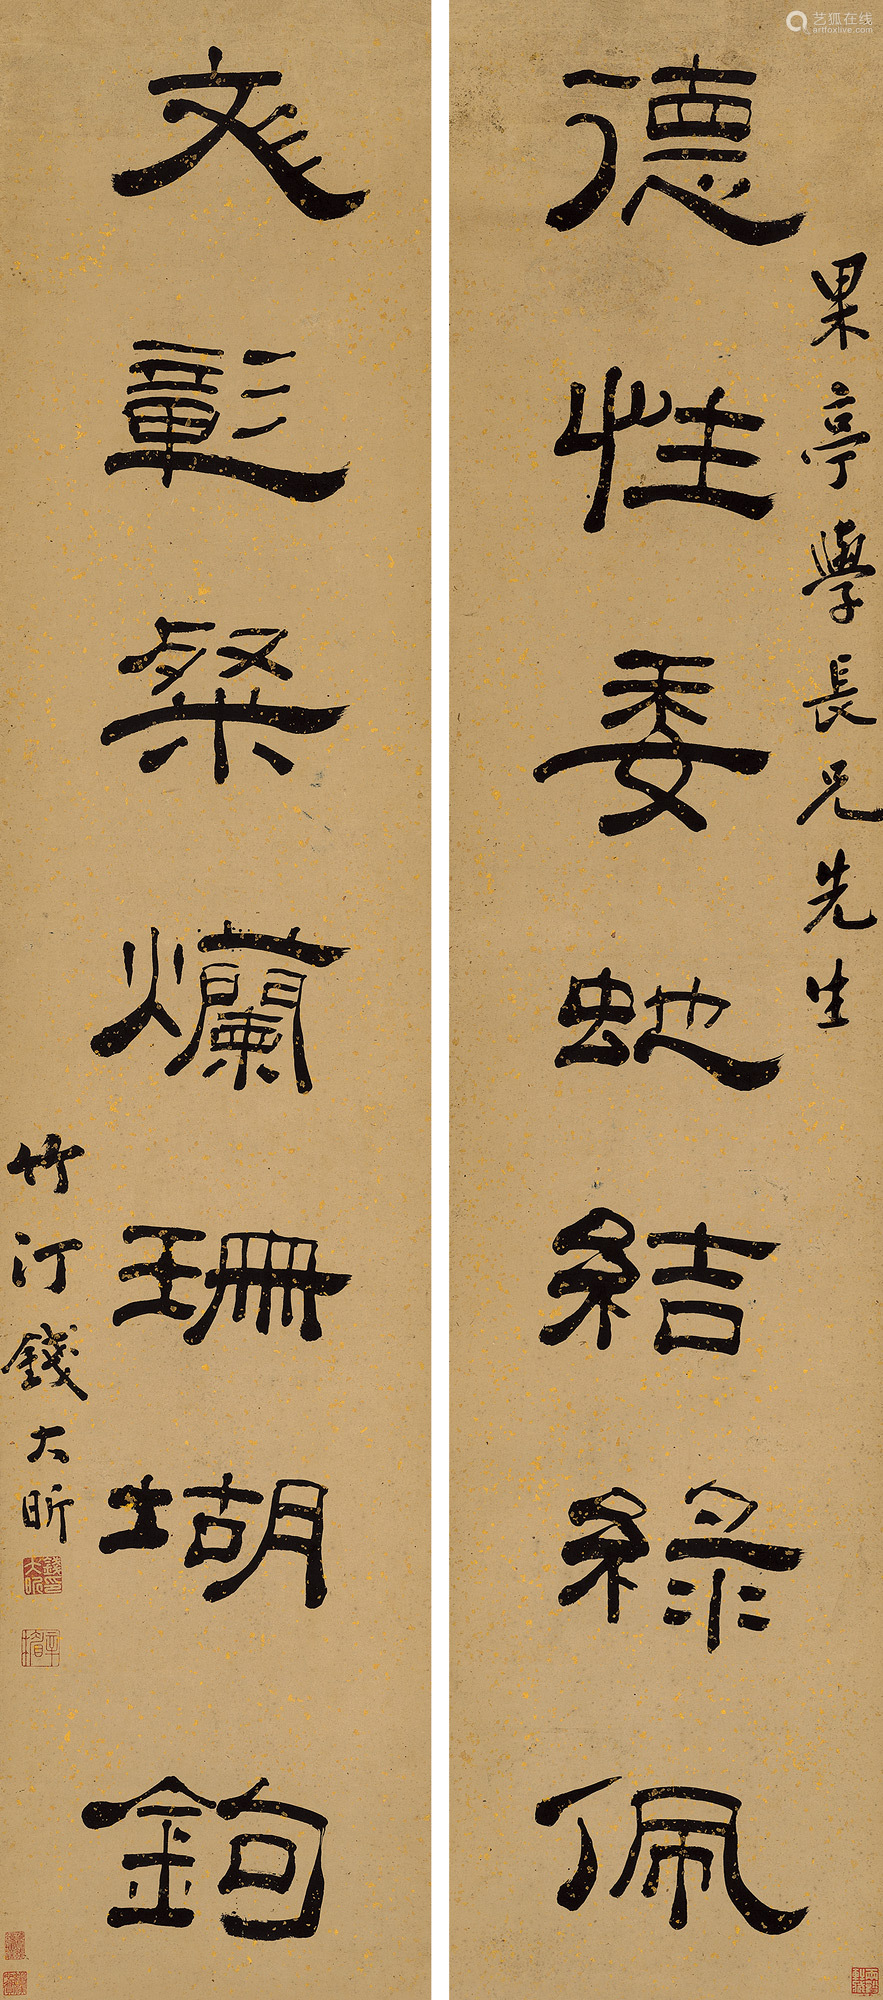 艺狐在线
artfoxlive.com
德性委虵結綠佩
果亭學長兄先生
彣彰粲爛珊瑚鉤
竹汀錢大昕
錢大昕印